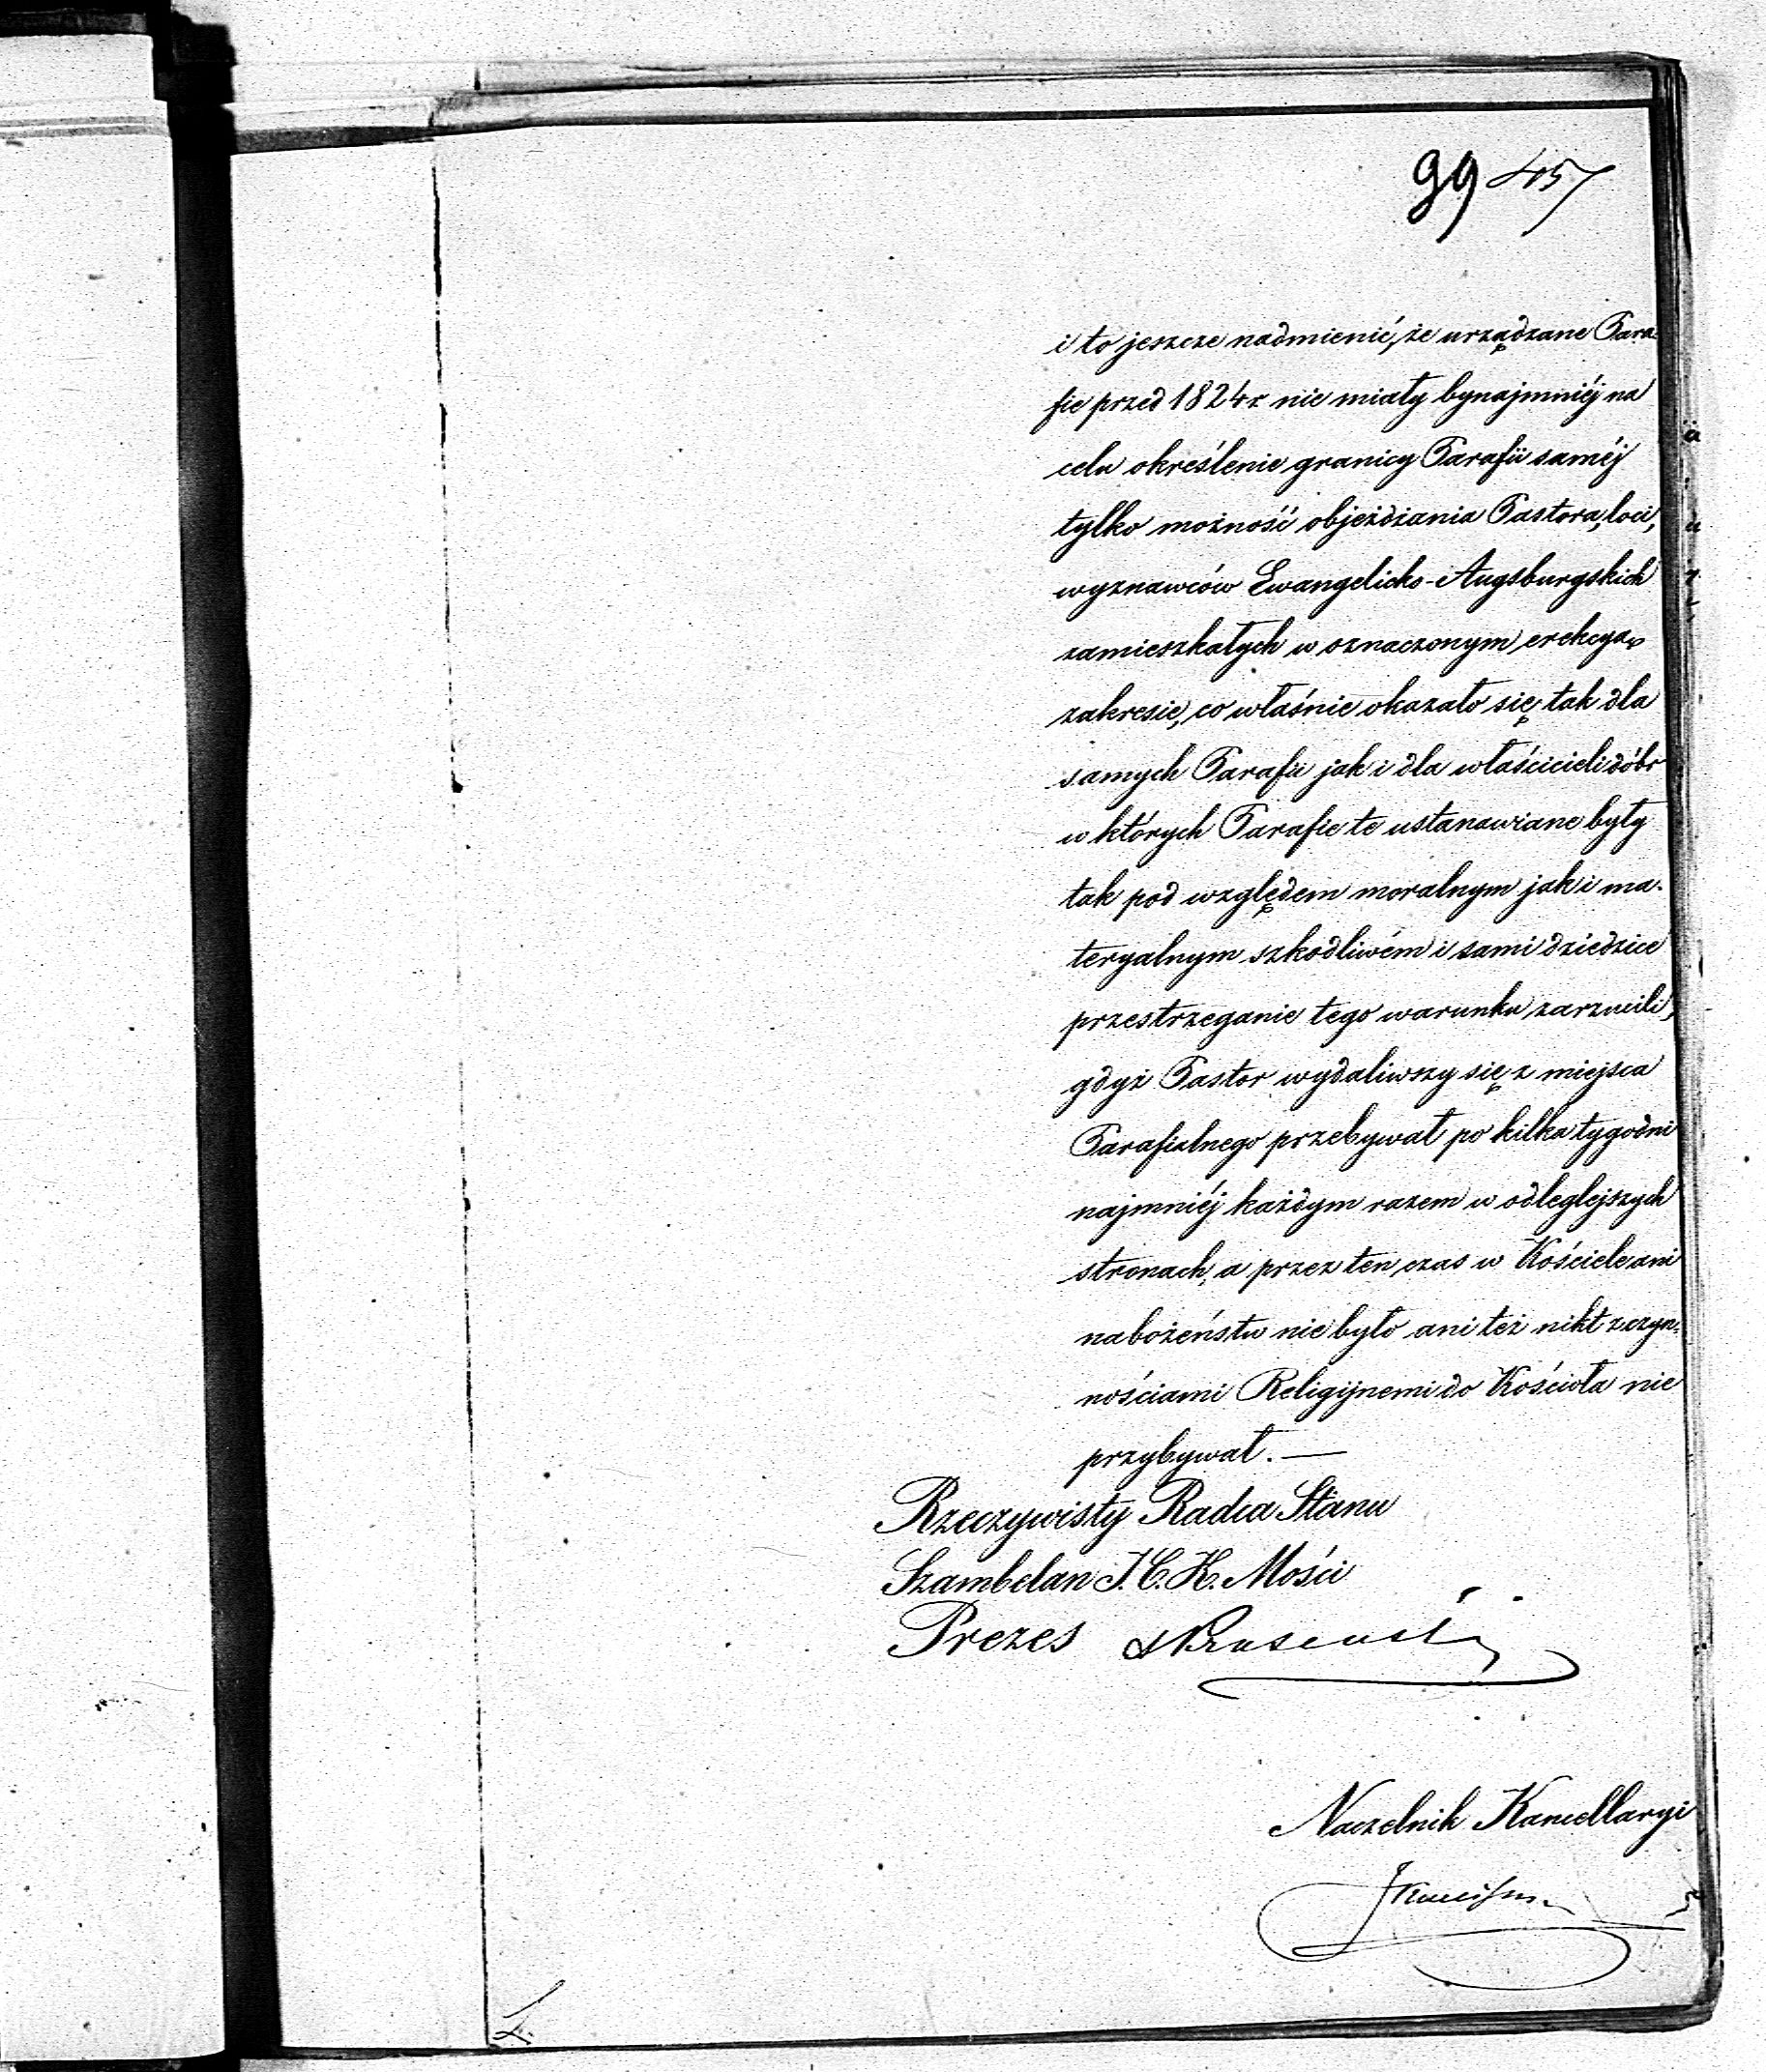 99 457
i to jeszcze nadmienić, że urządzane Para-
fie przed 1824 r nie miały bynajmniéj na
celu określenie granicy Parafii saméj
tylko możność objeżdżania Pastora, loci,
wyznawców Ewangelicko-Augsburgskich
zamieszkałych w oznaczonym erekcyą
zakresie, co właśnie okazało się tak dla
samych Parafii jak i dla właścicieli dóbr
w których Parafie te ustanawiane były
tak pod względem moralnym jak i ma-
teryalnym szkodliwém i sami dziedzice
przestrzeganie tego warunku zarzucili,
gdyż Pastor wydaliwszy się z miejsca
Parafialnego przebywał po kilka tygodni
najmniéj każdym razem w odleglejszych
stronach, a przez ten czas w Kościele ani
nabożeństw nie było ani też nikt z czyn-
nościami Religijnemi do Kościoła nie
przybywał. —
Rzeczywisty Radca Stanu
Szambelan J. C. K. Mości
Prezes
Naczelnik Kancellaryi